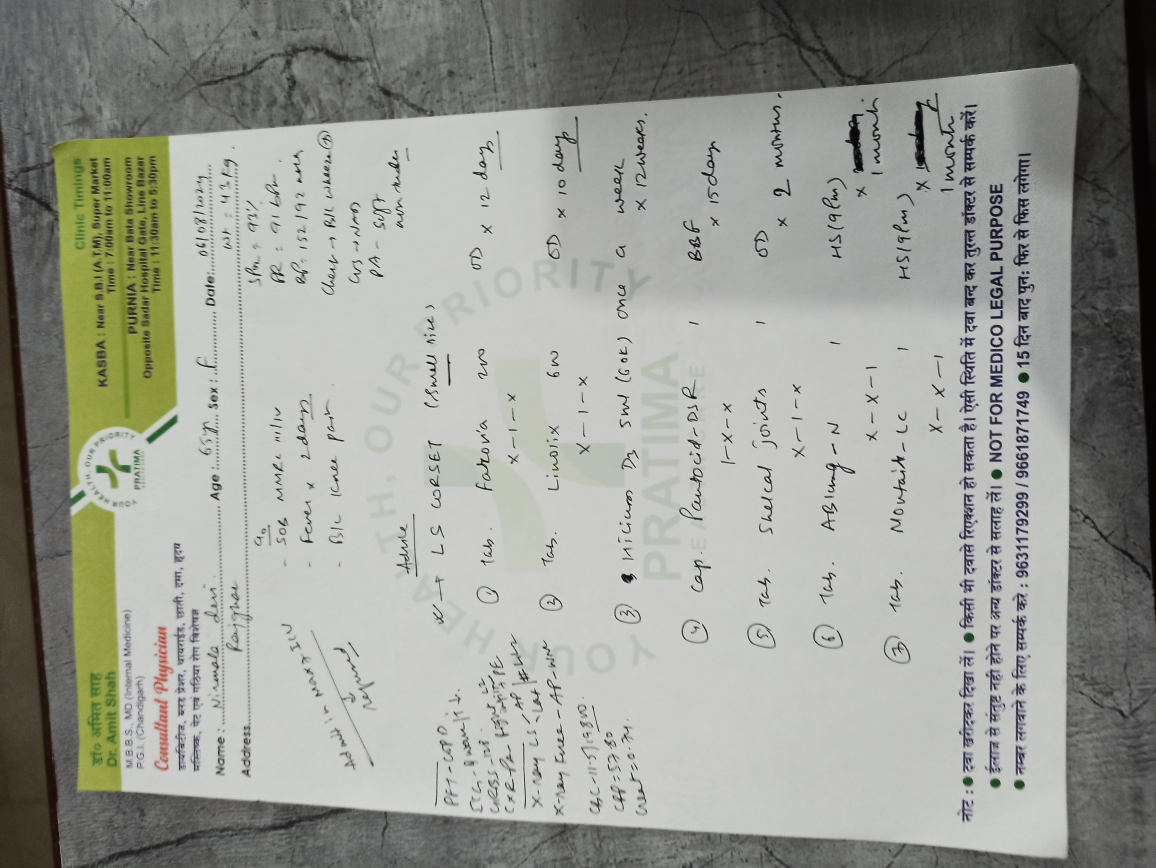 डा० अमित साह
Dr. Amit Shah
M.B.B.S., MD (Internal Medicine)
P.G.I. (Chandigarh)
Consultant Physician
डायबिटीज, ब्लड प्रेशर, थायराईड, छाती, दमा, हृदय
मस्तिष्क, पेट एवं गठिया रोग विशेषज्ञ
YOUR HEALTH, OUR PRIORITY
PRATIMA
Clinic Timings
KASBA : Near S.B.I (A.T.M), Super Market
Time : 7:00am to 11:00am
PURNIA : Near Bata Showroom
Opposite Sadar Hospital Gate, Line Bazar
Time : 11:30am to 5:30pm
Name : Nirmala devi Age : 65y Sex : F Date: 06/08/2024
Address
Wt = 43 kg.
c/o
- SOB MMRC III/IV
- Fever x 2 days
- B/L Knee pain
= 93%
PR = 91 bpm
BP = 152/92
Chest → B/L wheeze
PA - soft
non tender
Admit in
Advice
LS CORSET (Small size)
① Tab. 200 OD x 12 days
x-1-x
② Tab. Linolix 600 OD x 10 days
x-1-x
③ D3 5ml (60K) once a week
x 12 weeks.
④ Cap. Pantocid-DSR 1 BBF
1-x-x x 15 days
⑤ Tab. Shelcal joints 1 OD
x-1-x x 2 months.
⑥ Tab. ABlung-N 1 HS (9Pm)
x-x-1 x 1 month.
⑦ Tab. Montair-LC 1 HS (9Pm)
x-x-1 x 1 month
PFT - COPD
X-ray LS - Lat / AP
X-ray Knee - AP
CBC - 11.5/19800
CRP = 57.80
Creat = 0.74
YOUR HEALTH, OUR PRIORITY
PRATIMA
नोट : ● दवा खरीदकर दिखा लें। ● किसी भी दवासे रिएक्शन हो सकता है। ऐसी स्थिति में दवा बन्द कर तुरन्त डॉक्टर से सम्पर्क करें।
● ईलाज से संतुष्ट नहीं होने पर अन्य डॉक्टर से सलाह लें। ● NOT FOR MEDICO LEGAL PURPOSE
● नम्बर लगवाने के लिए सम्पर्क करे : 9631179299 / 9661871749 ● 15 दिन बाद पुनः फिर से फिस लगेगा।